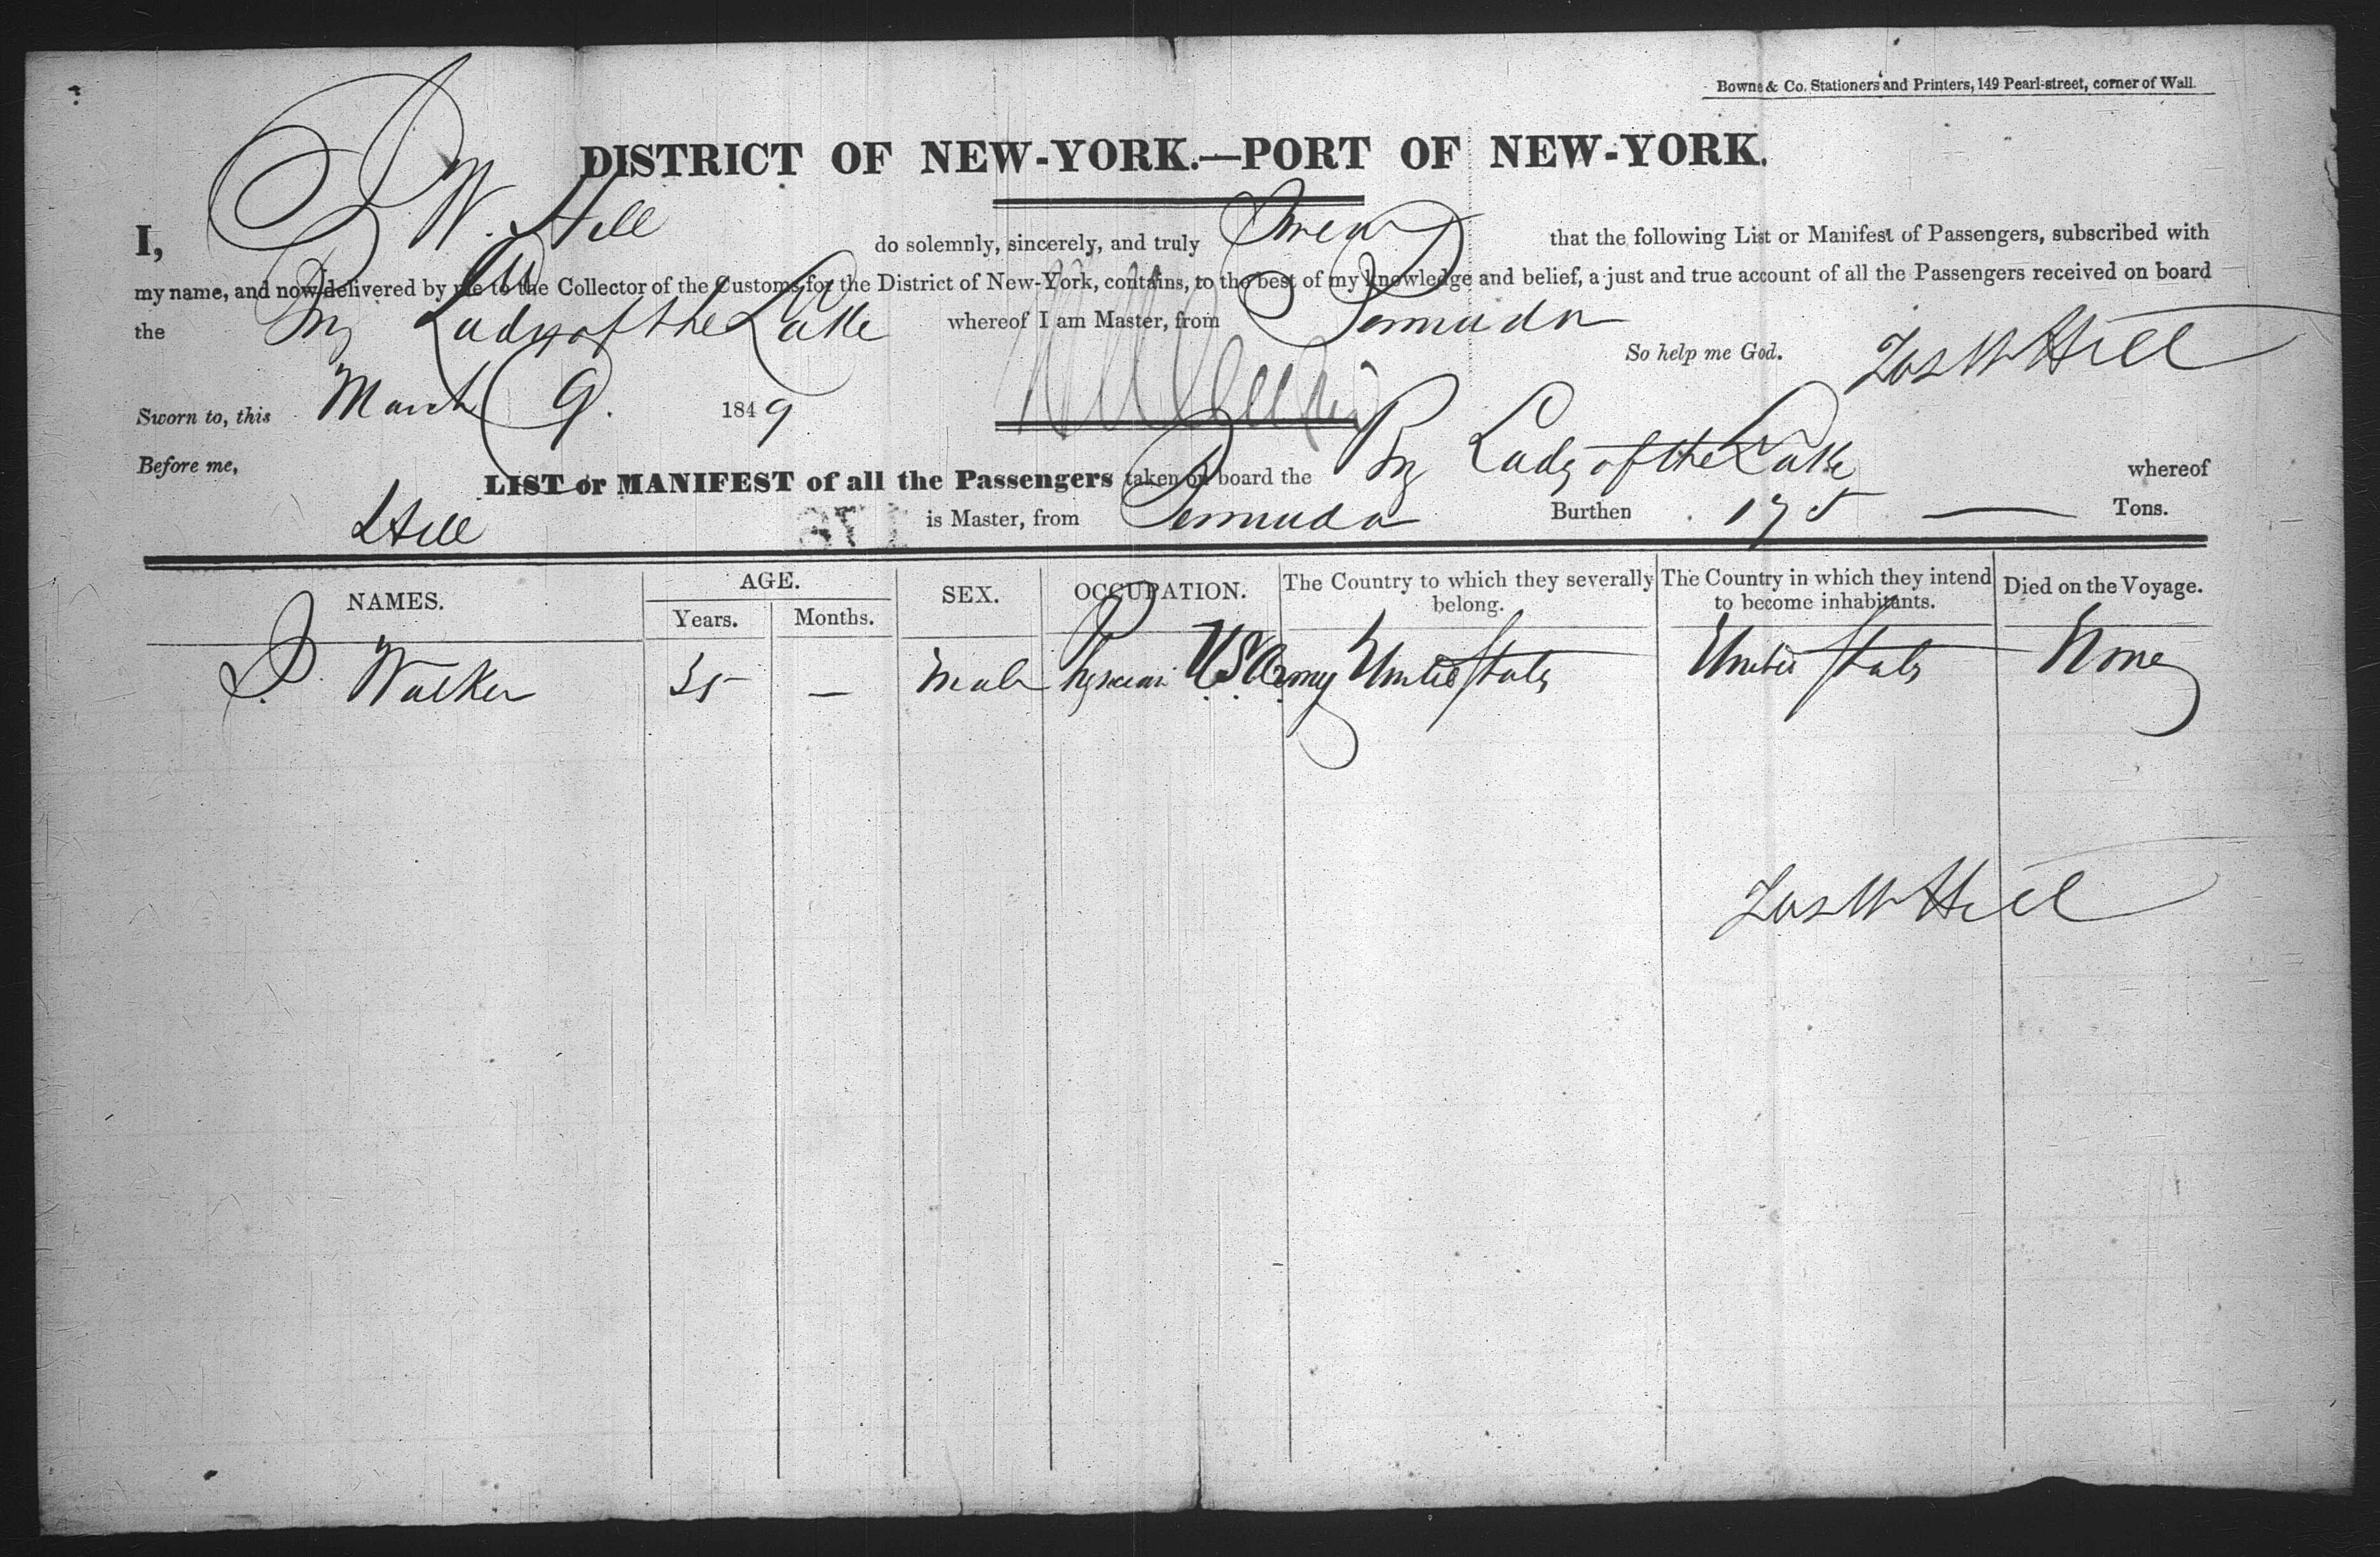 Bowne & Co. Stationers and Printers, 149 Pearl-street, corner of Wall.
DISTRICT OF NEW-YORK.—PORT OF NEW-YORK.
I, W. Hill do solemnly, sincerely, and truly Swear that the following List or Manifest of Passengers, subscribed with
my name, and now delivered by me to the Collector of the Customs for the District of New-York, contains, to the best of my knowledge and belief, a just and true account of all the Passengers received on board
the Brig Lady of the Lake whereof I am Master, from Bermuda
So help me God. Jas W Hill
Sworn to, this March 9. 1849
Before me,
LIST or MANIFEST of all the Passengers taken on board the Brig Lady of the Lake whereof
Hill is Master, from Bermuda Burthen 175 — Tons.
NAMES. AGE. SEX. OCCUPATION. The Country to which they severally belong. The Country in which they intend to become inhabitants. Died on the Voyage.
Years. Months.
Walker 35 — Male Physician U.S. Army United States United States None
Jas W Hill